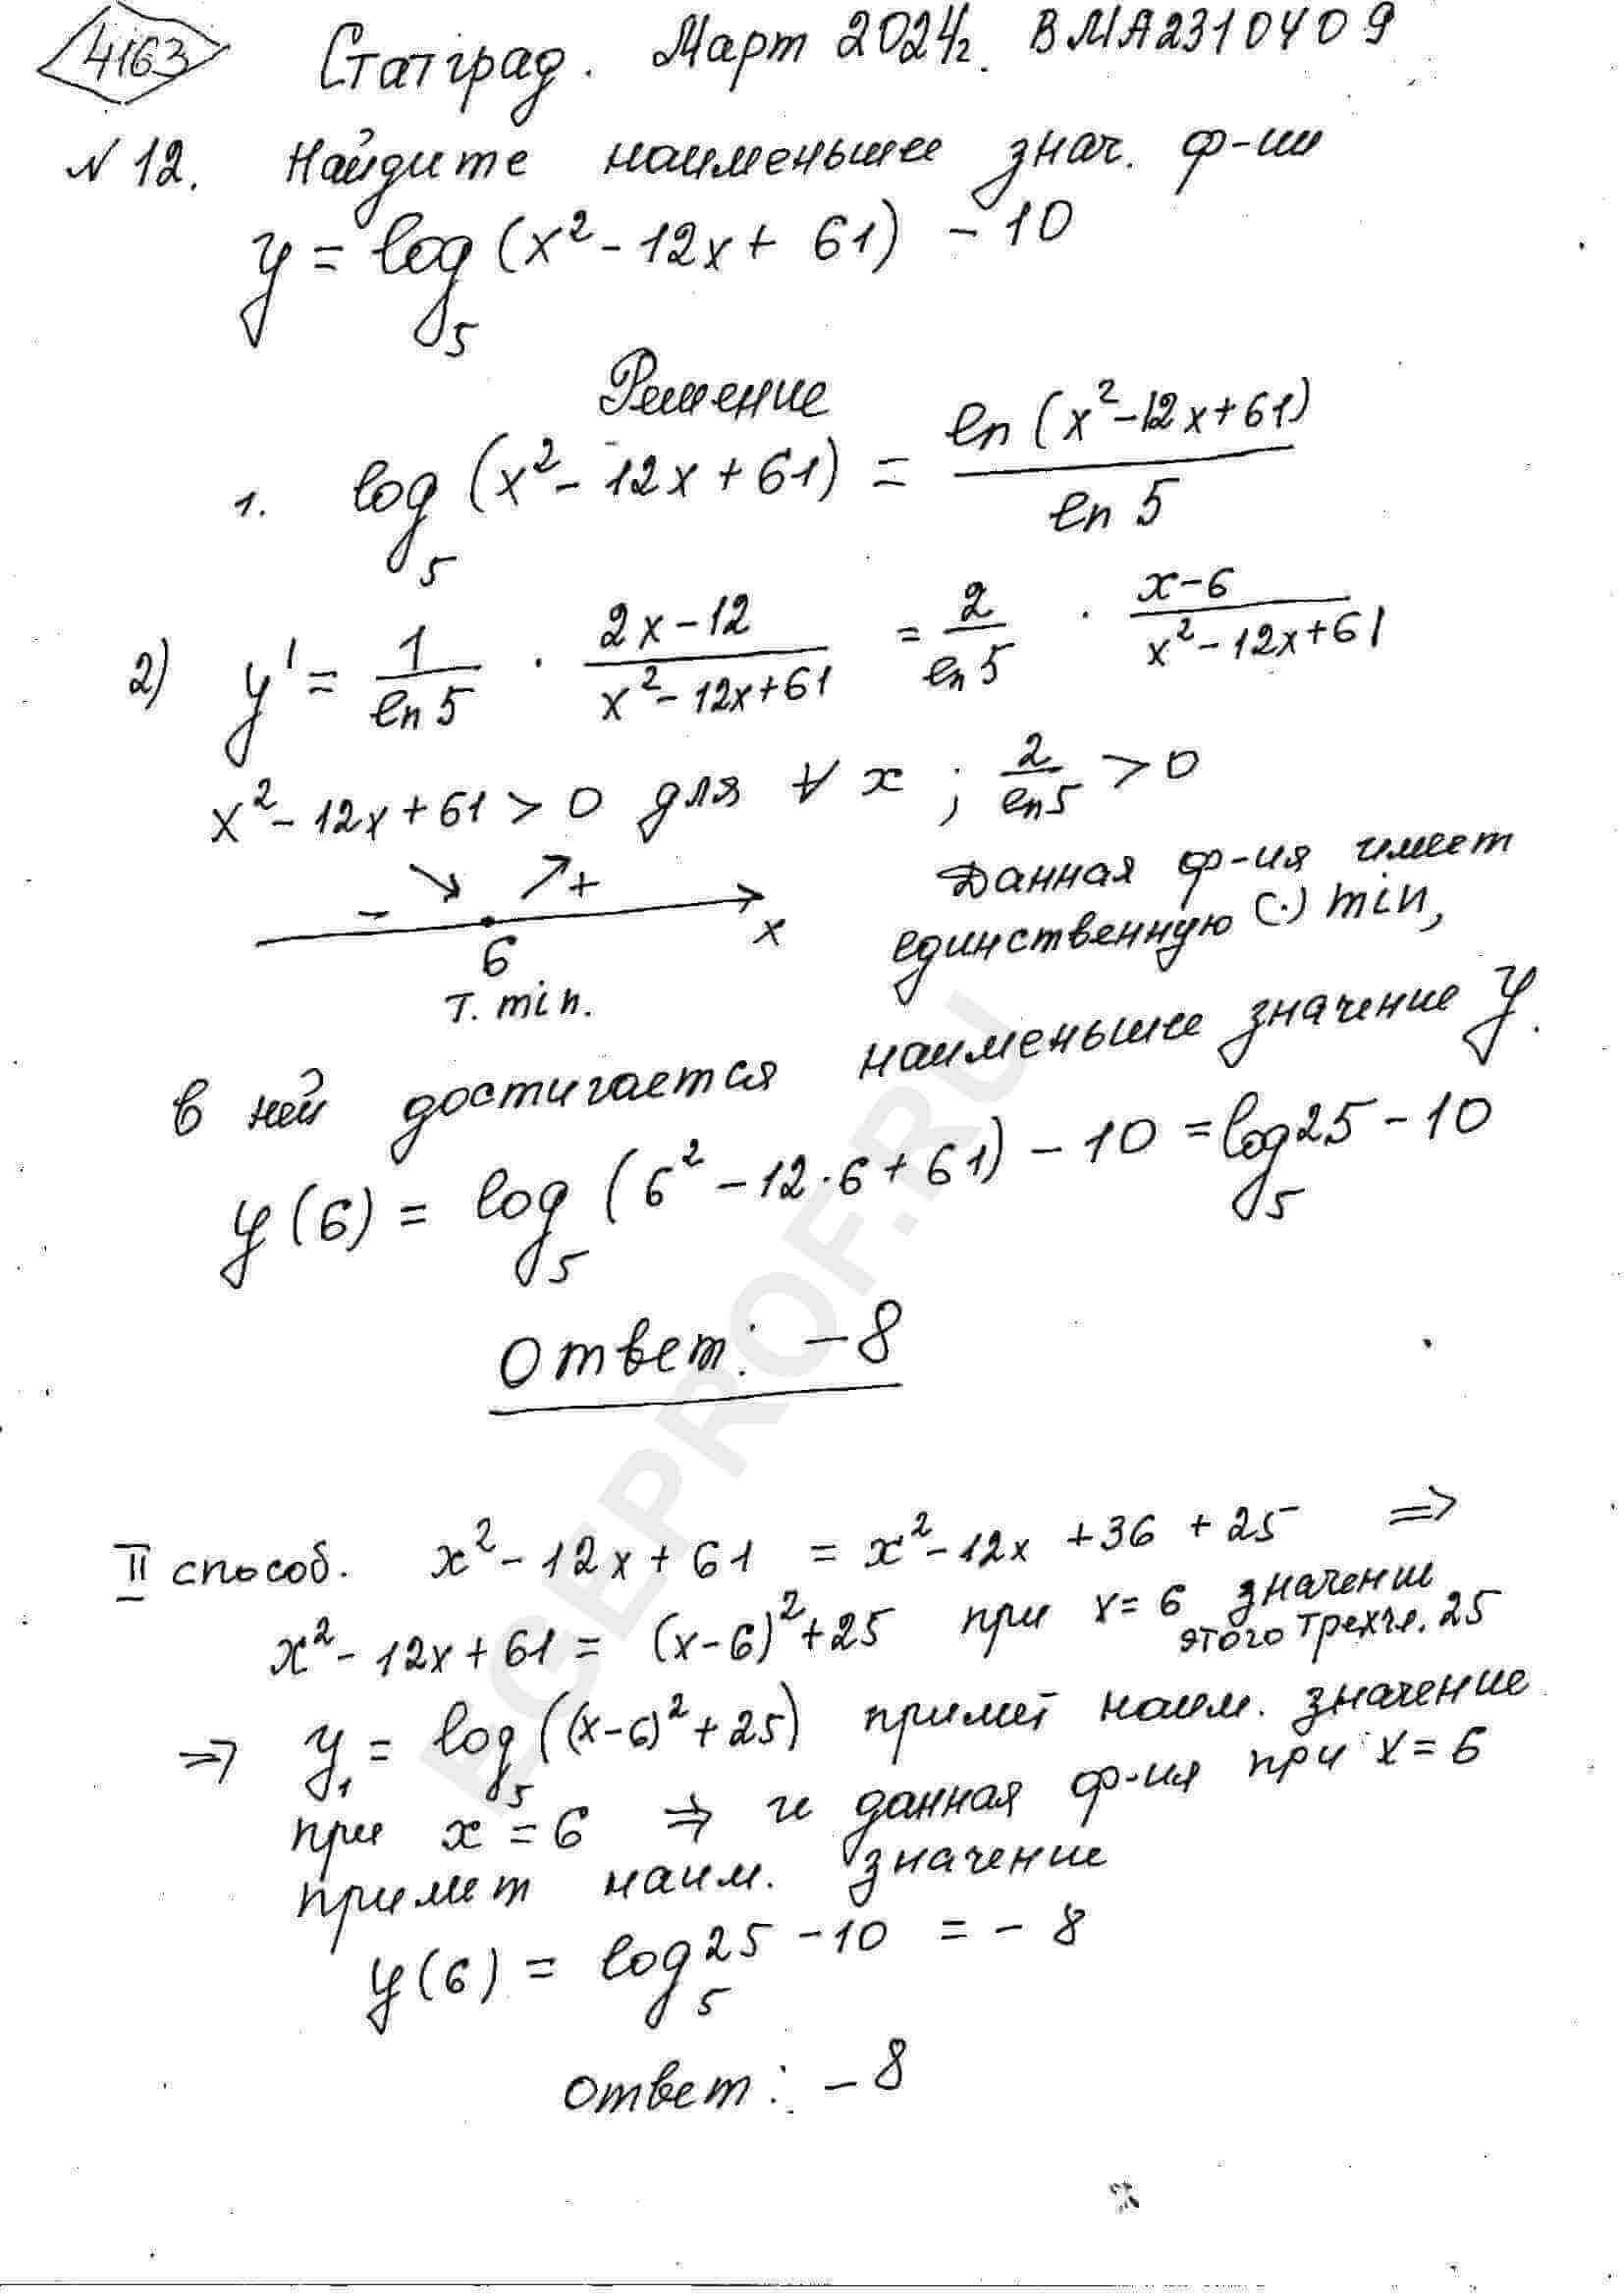 4163
Статград. Март 2024г. ВМА2310409
№12. Найдите наименьшее знач. ф-ии
y = log₅(x² - 12x + 61) - 10
Решение
1. log₅(x² - 12x + 61) = ln(x² - 12x + 61) / ln 5
2) y' = 1/ln 5 · (2x - 12)/(x² - 12x + 61) = 2/ln 5 · (x - 6)/(x² - 12x + 61)
x² - 12x + 61 > 0 для ∀ x ; 2/ln 5 > 0
↘ ↗
- +
6 x
т. min.
Данная ф-ия имеет
единственную (·) min,
в ней достигается наименьшее значение y.
y(6) = log₅(6² - 12·6 + 61) - 10 = log₅25 - 10
Ответ: -8
II способ. x² - 12x + 61 = x² - 12x + 36 + 25 ⇒
x² - 12x + 61 = (x - 6)² + 25 при x = 6 значение
этого трехчл. 25
⇒ y₁ = log₅((x - 6)² + 25) примет наим. значение
при x = 6 ⇒ и данная ф-ия при x = 6
примет наим. значение
y(6) = log₅25 - 10 = -8
Ответ: -8
EGEPROF.RU